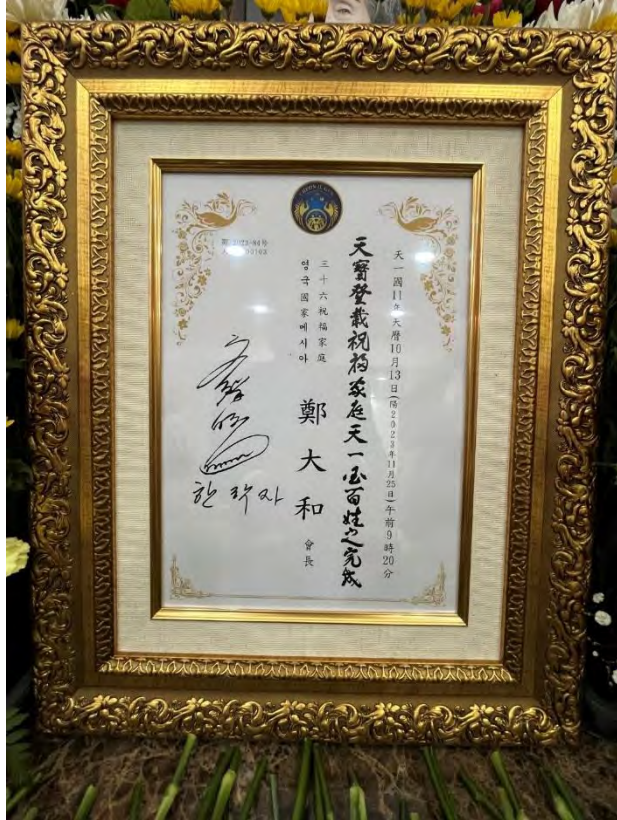 天一國11年天曆10月13日(陽2023年11月25日)午前9時20分
天寶登載祝福家庭天一国百姓之完成
三十六祝福家庭
영국國家메시아
鄭大和 會長
文鮮明
한학자